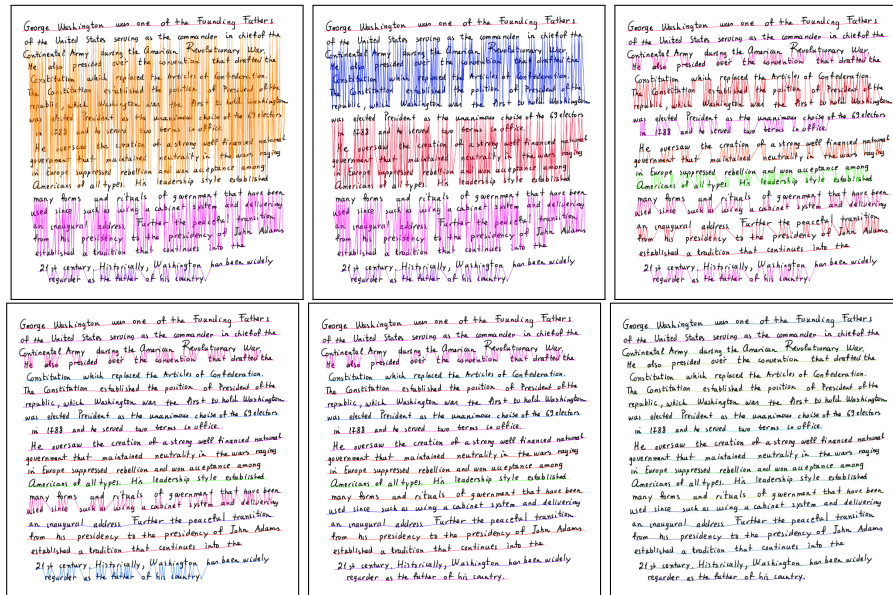 George Washington was one of the Founding Fathers
of the United States serving as the commander in chief of the
Continental Army during the American Revolutionary War.
He also presided over the convention that drafted the
Constitution which replaced the Articles of Confederation.
The Constitution established the position of President of the
republic, which Washington was the first to hold Washington
was elected President as the unanimous choise of the 69 electors
in 1788 and he served two terms in office.
He oversaw the creation of a strong well financed national
government that maintained neutrality in the wars raging
in Europe suppressed rebellion and won acceptance among
Americans of all types. His leadership style established
many forms and rituals of government that have been
used since such as using a cabinet system and delivering
an inaugural address Further the peaceful transition
from his presidency to the presidency of John Adams
established a tradition that continues into the
21st century. Historically, Washington has been widely
regarder as the father of his country.
George Washington was one of the Founding Fathers
of the United States serving as the commander in chief of the
Continental Army during the American Revolutionary War.
He also presided over the convention that drafted the
Constitution which replaced the Articles of Confederation.
The Constitution established the position of President of the
republic, which Washington was the first to hold Washington
was elected President as the unanimous choise of the 69 electors
in 1788 and he served two terms in office.
He oversaw the creation of a strong well financed national
government that maintained neutrality in the wars raging
in Europe suppressed rebellion and won acceptance among
Americans of all types. His leadership style established
many forms and rituals of government that have been
used since such as using a cabinet system and delivering
an inaugural address Further the peaceful transition
from his presidency to the presidency of John Adams
established a tradition that continues into the
21st century. Historically, Washington has been widely
regarder as the father of his country.
George Washington was one of the Founding Fathers
of the United States serving as the commander in chief of the
Continental Army during the American Revolutionary War.
He also presided over the convention that drafted the
Constitution which replaced the Articles of Confederation.
The Constitution established the position of President of the
republic, which Washington was the first to hold Washington
was elected President as the unanimous choise of the 69 electors
in 1788 and he served two terms in office.
He oversaw the creation of a strong well financed national
government that maintained neutrality in the wars raging
in Europe suppressed rebellion and won acceptance among
Americans of all types. His leadership style established
many forms and rituals of government that have been
used since such as using a cabinet system and delivering
an inaugural address Further the peaceful transition
from his presidency to the presidency of John Adams
established a tradition that continues into the
21st century. Historically, Washington has been widely
regarder as the father of his country.
George Washington was one of the Founding Fathers
of the United States serving as the commander in chief of the
Continental Army during the American Revolutionary War.
He also presided over the convention that drafted the
Constitution which replaced the Articles of Confederation.
The Constitution established the position of President of the
republic, which Washington was the first to hold Washington
was elected President as the unanimous choise of the 69 electors
in 1788 and he served two terms in office.
He oversaw the creation of a strong well financed national
government that maintained neutrality in the wars raging
in Europe suppressed rebellion and won acceptance among
Americans of all types. His leadership style established
many forms and rituals of government that have been
used since such as using a cabinet system and delivering
an inaugural address Further the peaceful transition
from his presidency to the presidency of John Adams
established a tradition that continues into the
21st century. Historically, Washington has been widely
regarder as the father of his country.
George Washington was one of the Founding Fathers
of the United States serving as the commander in chief of the
Continental Army during the American Revolutionary War.
He also presided over the convention that drafted the
Constitution which replaced the Articles of Confederation.
The Constitution established the position of President of the
republic, which Washington was the first to hold Washington
was elected President as the unanimous choise of the 69 electors
in 1788 and he served two terms in office.
He oversaw the creation of a strong well financed national
government that maintained neutrality in the wars raging
in Europe suppressed rebellion and won acceptance among
Americans of all types. His leadership style established
many forms and rituals of government that have been
used since such as using a cabinet system and delivering
an inaugural address Further the peaceful transition
from his presidency to the presidency of John Adams
established a tradition that continues into the
21st century. Historically, Washington has been widely
regarder as the father of his country.
George Washington was one of the Founding Fathers
of the United States serving as the commander in chief of the
Continental Army during the American Revolutionary War.
He also presided over the convention that drafted the
Constitution which replaced the Articles of Confederation.
The Constitution established the position of President of the
republic, which Washington was the first to hold Washington
was elected President as the unanimous choise of the 69 electors
in 1788 and he served two terms in office.
He oversaw the creation of a strong well financed national
government that maintained neutrality in the wars raging
in Europe suppressed rebellion and won acceptance among
Americans of all types. His leadership style established
many forms and rituals of government that have been
used since such as using a cabinet system and delivering
an inaugural address Further the peaceful transition
from his presidency to the presidency of John Adams
established a tradition that continues into the
21st century. Historically, Washington has been widely
regarder as the father of his country.